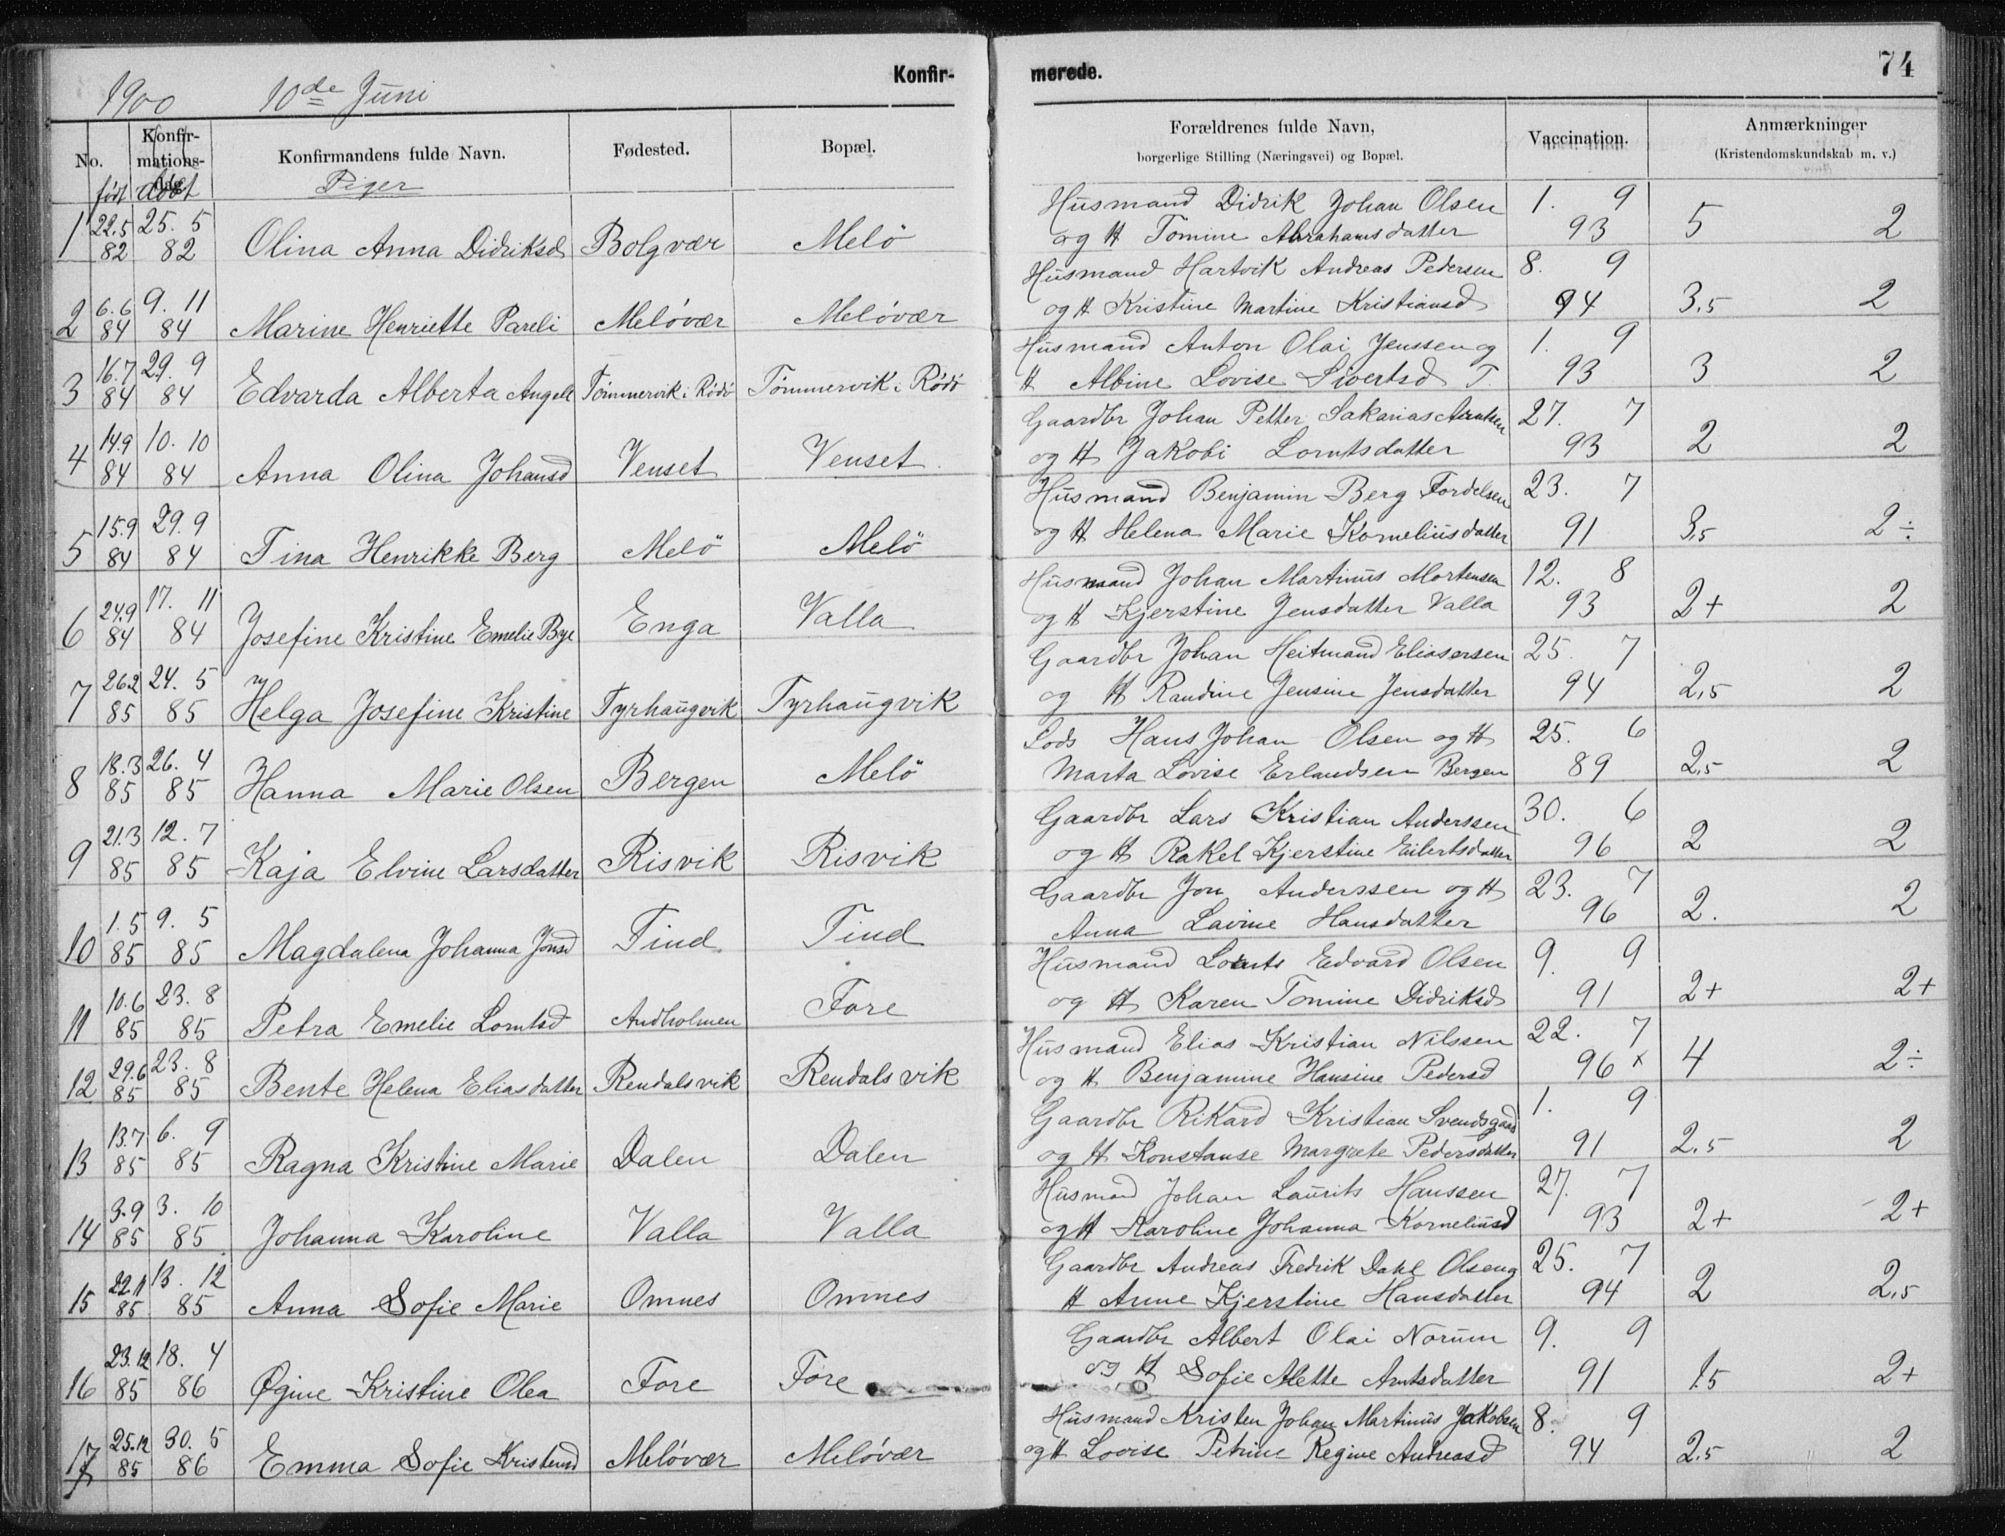 1900 10de Juni
Konfir-
merede.
74
No.
Konfir-
mations-
dag
født døbt
Konfirmandens fulde Navn.
Piger
Fødested.
Bopæl.
Forældrenes fulde Navn,
borgerlige Stilling (Næringsvei) og Bopæl.
Vaccination.
Anmærkninger
(Kristendomskundskab m. v.)
22.5 25. 5 Husmand Didrik Johan Olsen 1. 9
1 82 82 Olina Anna Didriksd Bolgvær Melö og H Tomine Abrahamsdatter 93 5 2
6.6 9. 11 Husmand Hartvik Andreas Pedersen 8. 9
2 84 84 Marine Henriette Pareli Melövær Melövær og H Kristine Martine Kristiansd 94 3,5 2
16.7 29. 9 Husmand Anton Olai Jenssen og 1. 9
3 84 84 Edvarda Alberta Angell Tömmervik i Rödö Tömmervik i Rödö H Albine Lovise Sivertsd T. 93 3 2
14.9 10. 10 Gaardbr Johan Petter Sakarias 27. 7
4 84 84 Anna Olina Johansd Venset Venset og H Jakobi Lorntsdatter 93 2 2
15.9 29. 9 Husmand Benjamin Berg Fordelsen 23. 7
5 84 84 Tina Henrikke Berg Melö Melö og H Helena Marie Korneliusdatter 91 3,5 2÷
24.9 17. 11 Husmand Johan Martinus Mortensen 12. 8
6 84 84 Josefine Kristine Emelie Bye Enga Valla og H Kjerstine Jensdatter Valla 93 2+ 2
26.2 24. 5 Gaardbr Johan Heitmand Eliasersen 25. 7
7 85 85 Helga Josefine Kristine Tyrhaugvik Tyrhaugvik og H Randine Jensine Jensdatter 94 2,5 2
18.3 26. 4 Lods Hans Johan Olsen og H 25. 6
8 85 85 Hanna Marie Olsen Bergen Melö Marta Lovise Erlandsen Bergen 89 2,5 2
21.3 12. 7 Gaardbr Lars Kristian Anderssen 30. 6
9 85 85 Kaja Elvine Larsdatter Risvik Risvik og H Rakel Kjerstine Eilertsdatter 96 2 2
1. 5 9. 5 Gaardbr Jon Anderssen og H 23. 7
10 85 85 Magdalena Johanna Jonsd Tind Tind Anna Lavine Hansdatter 96 2. 2
10.6 23. 8 Husmand Lornts Edvard Olsen 9. 9
11 85 85 Petra Emelie Lorntsd Andholmen Fore og H Karen Tomine Didriksd 91 2+ 2+
29.6 23. 8 Husmand Elias Kristian Nilssen 22. 7
12 85 85 Bente Helena Eliasdatter Rendalsvik Rendalsvik og H Benjamine Hansine Pedersd 96 x 4 2÷
13.7 6. 9 Gaardbr Rikard Kristian Svendsgaard 1. 9
13 85 85 Ragna Kristine Marie Dalen Dalen og H Konstanse Margrete Pedersdatter 91 2,5 2
3.9 3. 10 Husmand Johan Laurits Hanssen 27. 7
14 85 85 Johanna Karoline Valla Valla og H Karoline Johanna Korneliusd 93 2+ 2+
22.11 13. 12 Gaardbr Andreas Fredrik Dahl Olsen og 25. 7
15 85 85 Anna Sofie Marie Omnes Omnes H Anne Kjerstine Hansdatter 94 2 2,5
23.12 18. 4 Gaardbr Albert Olai Norum 9. 9
16 85 86 Øgine Kristine Olea Fore Fore og H Sofie Alette Arntsdatter 91 1.5 2+
25.12 30. 5 Husmand Kristen Johan Martinus Jakobsen 8. 9
17 85 86 Emma Sofie Kristensd Melövær Melövær og H Lovise Petrine Regine Andreasd 94 2,5 2